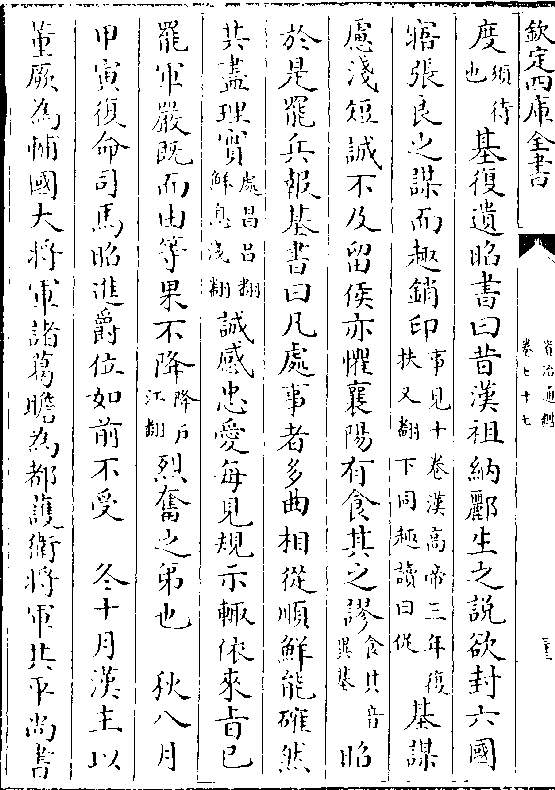 欽定四庫全書
資治通鑑
卷七十七
度須待也基復遺昭書曰昔漢祖納酈生之説欲封六國
寤張良之謀而趣銷印事見十卷漢高帝三年復扶又翻下同趣讀曰促基謀
慮淺短誠不及留侯亦懼襄陽有食其之謬食其音異基昭
於是罷兵報基書曰凡處事者多曲相從順鮮能確然
共盡理實處昌呂翻鮮息淺翻誠感忠愛每見規示輒依來旨已
罷軍嚴既而由等果不降降戶江翻烈奮之弟也　秋八月
甲寅復命司馬昭進爵位如前不受　冬十月漢主以
董厥為輔國大將軍諸葛瞻為都護衛將軍共平尚書